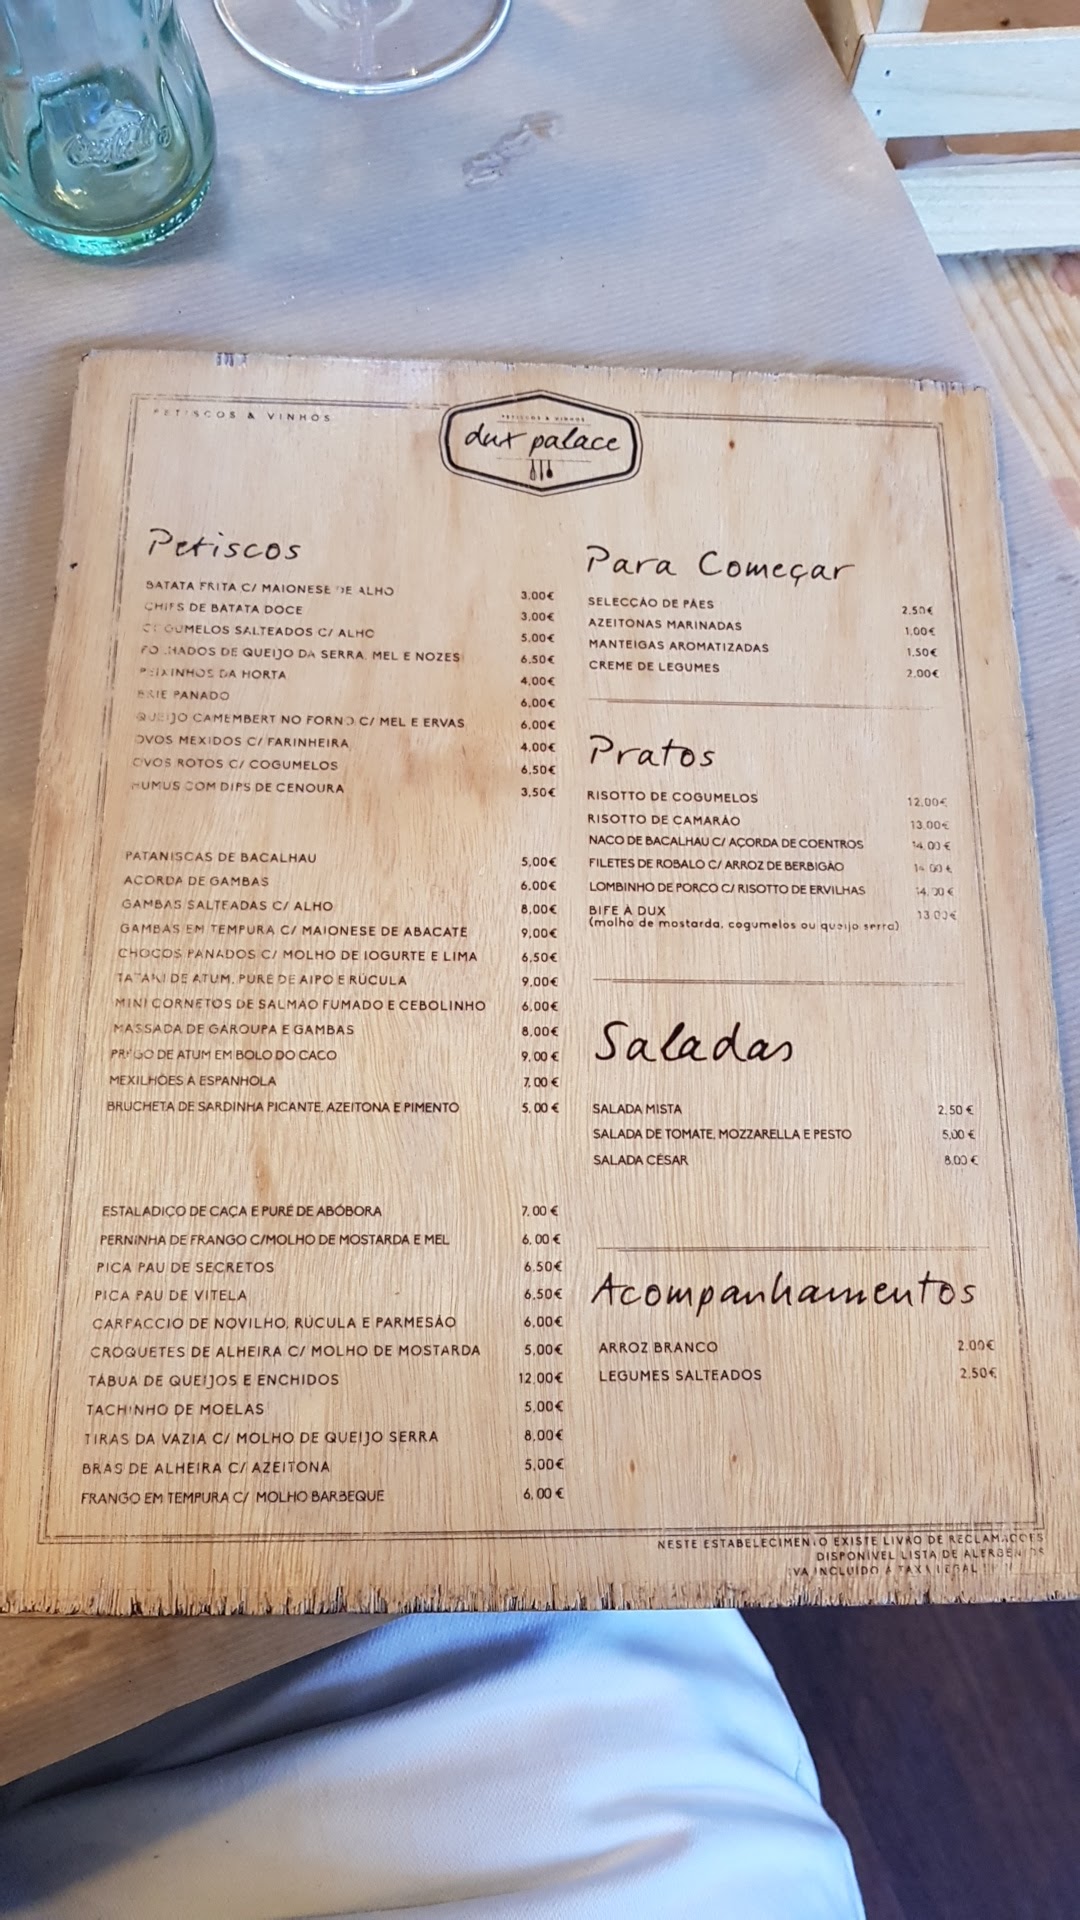 Coca-Cola
PETISCOS & VINHOS
PETISCOS & VINHOS
dux palace
Petiscos
BATATA FRITA C/ MAIONESE DE ALHO 3,00€
CHIPS DE BATATA DOCE 3,00€
COGUMELOS SALTEADOS C/ ALHO 5,00€
FOLHADOS DE QUEIJO DA SERRA, MEL E NOZES 6,50€
PEIXINHOS DA HORTA 4,00€
BRIE PANADO 6,00€
QUEIJO CAMEMBERT NO FORNO C/ MEL E ERVAS 6,00€
OVOS MEXIDOS C/ FARINHEIRA 4,00€
OVOS ROTOS C/ COGUMELOS 6,50€
HUMUS COM DIPS DE CENOURA 3,50€
PATANISCAS DE BACALHAU 5,00€
AÇORDA DE GAMBAS 6,00€
GAMBAS SALTEADAS C/ ALHO 8,00€
GAMBAS EM TEMPURA C/ MAIONESE DE ABACATE 9,00€
CHOCOS PANADOS C/ MOLHO DE IOGURTE E LIMA 6,50€
TATAKI DE ATUM, PURÉ DE AIPO E RÚCULA 9,00€
MINI CORNETOS DE SALMÃO FUMADO E CEBOLINHO 6,00€
MASSADA DE GAROUPA E GAMBAS 8,00€
PREGO DE ATUM EM BOLO DO CACO 9,00 €
MEXILHÕES À ESPANHOLA 7,00 €
BRUCHETA DE SARDINHA PICANTE, AZEITONA E PIMENTO 5,00 €
ESTALADIÇO DE CAÇA E PURÉ DE ABÓBORA 7,00 €
PERNINHA DE FRANGO C/MOLHO DE MOSTARDA E MEL 6,00 €
PICA PAU DE SECRETOS 6,50€
PICA PAU DE VITELA 6,50€
CARPACCIO DE NOVILHO, RÚCULA E PARMESÃO 6,00€
CROQUETES DE ALHEIRA C/ MOLHO DE MOSTARDA 5,00€
TÁBUA DE QUEIJOS E ENCHIDOS 12,00€
TACHINHO DE MOELAS 5,00€
TIRAS DA VAZIA C/ MOLHO DE QUEIJO SERRA 8,00€
BRÁS DE ALHEIRA C/ AZEITONA 5,00€
FRANGO EM TEMPURA C/ MOLHO BARBEQUE 6,00 €
Para Começar
SELECÇÃO DE PÃES 2,50€
AZEITONAS MARINADAS 1,00€
MANTEIGAS AROMATIZADAS 1,50€
CREME DE LEGUMES 2,00€
Pratos
RISOTTO DE COGUMELOS 12,00€
RISOTTO DE CAMARÃO 13,00€
NACO DE BACALHAU C/ AÇORDA DE COENTROS 14,00 €
FILETES DE ROBALO C/ ARROZ DE BERBIGÃO 14,00 €
LOMBINHO DE PORCO C/ RISOTTO DE ERVILHAS 14,00 €
BIFE À DUX 13,00€
(molho de mostarda, cogumelos ou queijo serra)
Saladas
SALADA MISTA 2,50 €
SALADA DE TOMATE, MOZZARELLA E PESTO 5,00 €
SALADA CÉSAR 8,00 €
Acompanhamentos
ARROZ BRANCO 2,00€
LEGUMES SALTEADOS 2,50€
NESTE ESTABELECIMENTO EXISTE LIVRO DE RECLAMAÇÕES
DISPONÍVEL LISTA DE ALERGÉNIOS
IVA INCLUÍDO À TAXA LEGAL